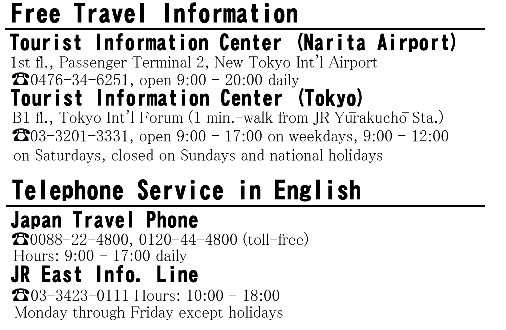 Free Travel Information
Tourist Information Center (Narita Airport)
1st fl., Passenger Terminal 2, New Tokyo Int'l Airport
☎0476-34-6251, open 9:00 - 20:00 daily
Tourist Information Center (Tokyo)
B1 fl., Tokyo Int'l Forum (1 min.-walk from JR Yūrakuchō Sta.)
☎03-3201-3331, open 9:00 - 17:00 on weekdays, 9:00 - 12:00
on Saturdays, closed on Sundays and national holidays
Telephone Service in English
Japan Travel Phone
☎0088-22-4800, 0120-44-4800 (toll-free)
Hours: 9:00 - 17:00 daily
JR East Info. Line
☎03-3423-0111 Hours: 10:00 - 18:00
Monday through Friday except holidays